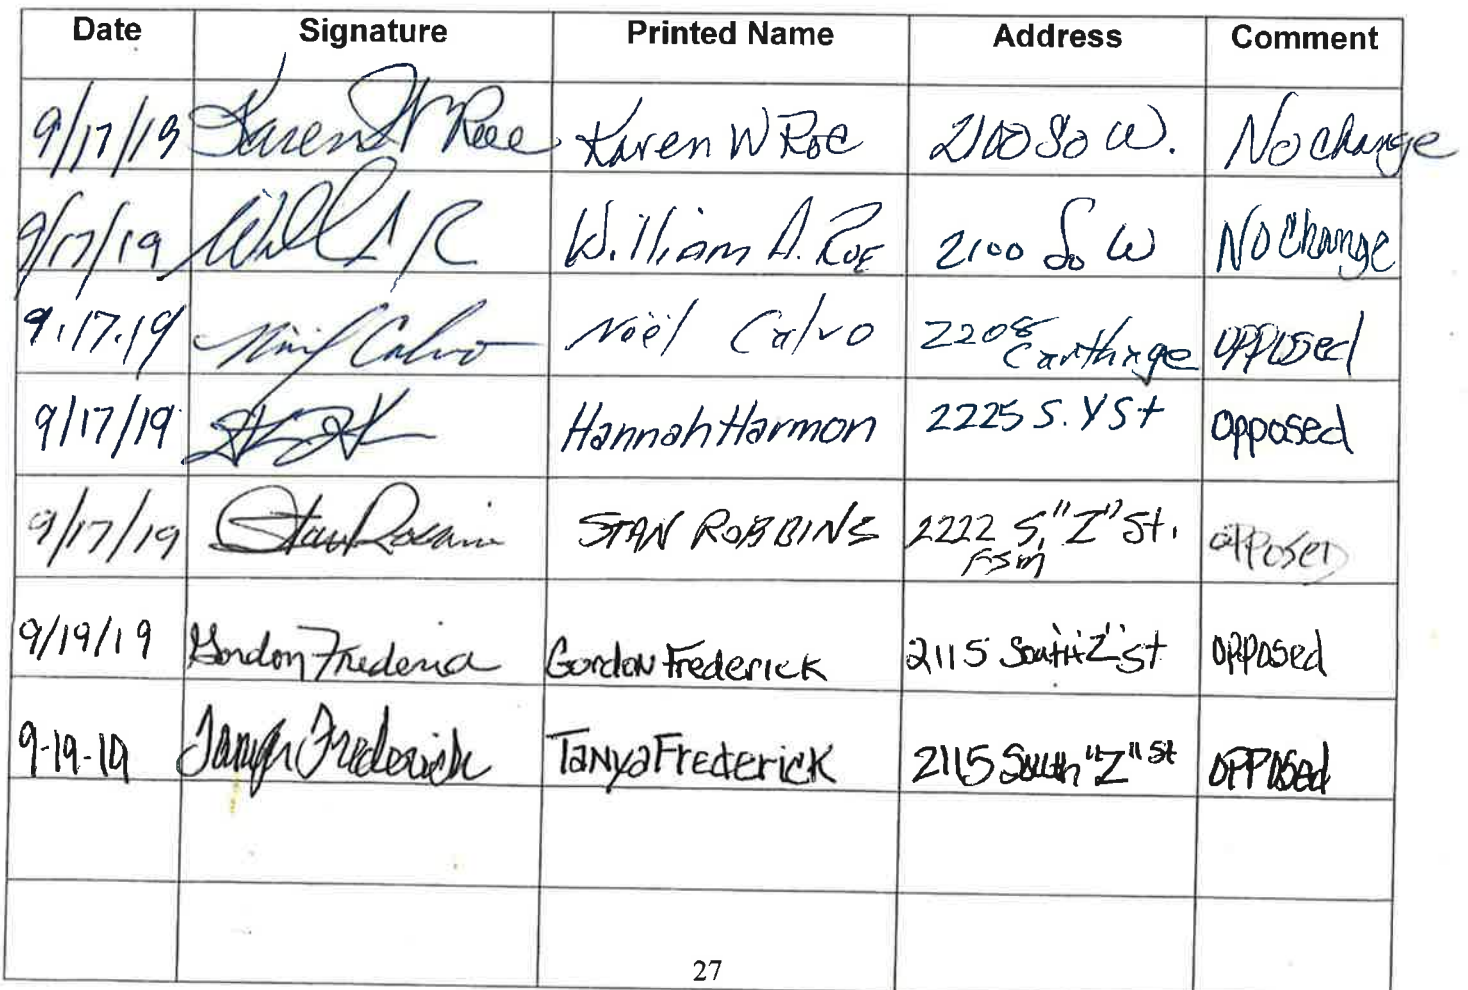 Date Signature Printed Name Address Comment
9/17/19 Karen W Roe Karen W Roe 2100 So W. No change
9/17/19 William A. Roe 2100 So W No Change
9.17.19 Noël Calvo Noël Calvo 2208 Carthage opposed
9/17/19 Hannah Harmon 2225 S. Y St opposed
9/17/19 STAN ROBBINS 2222 S. "Z" St. FSM opposed
9/19/19 Gordon Frederick Gordon Frederick 2115 South "Z" St opposed
9-19-19 Tanya Frederick Tanya Frederick 2115 South "Z" St opposed
27